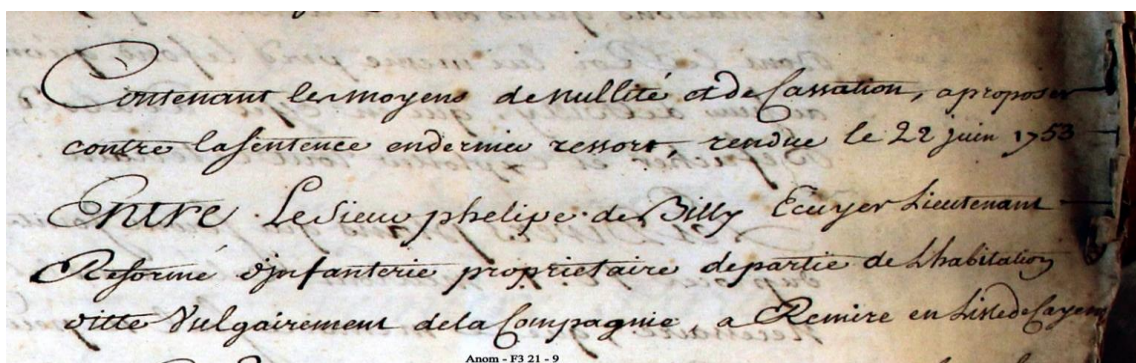 Contenant les moyens de nullité et de Cassation, a proposer
contre la sentence en dernier ressort, rendue le 22 juin 1753
Entre Le Sieur phelipe de Billy Ecuyer Lieutenant
Reformé d'infanterie proprietaire de partie de L'habitation
ditte Vulgairement de la Compagnie, a Remire en L'isle de Cayenne
Anom - F3 21 - 9